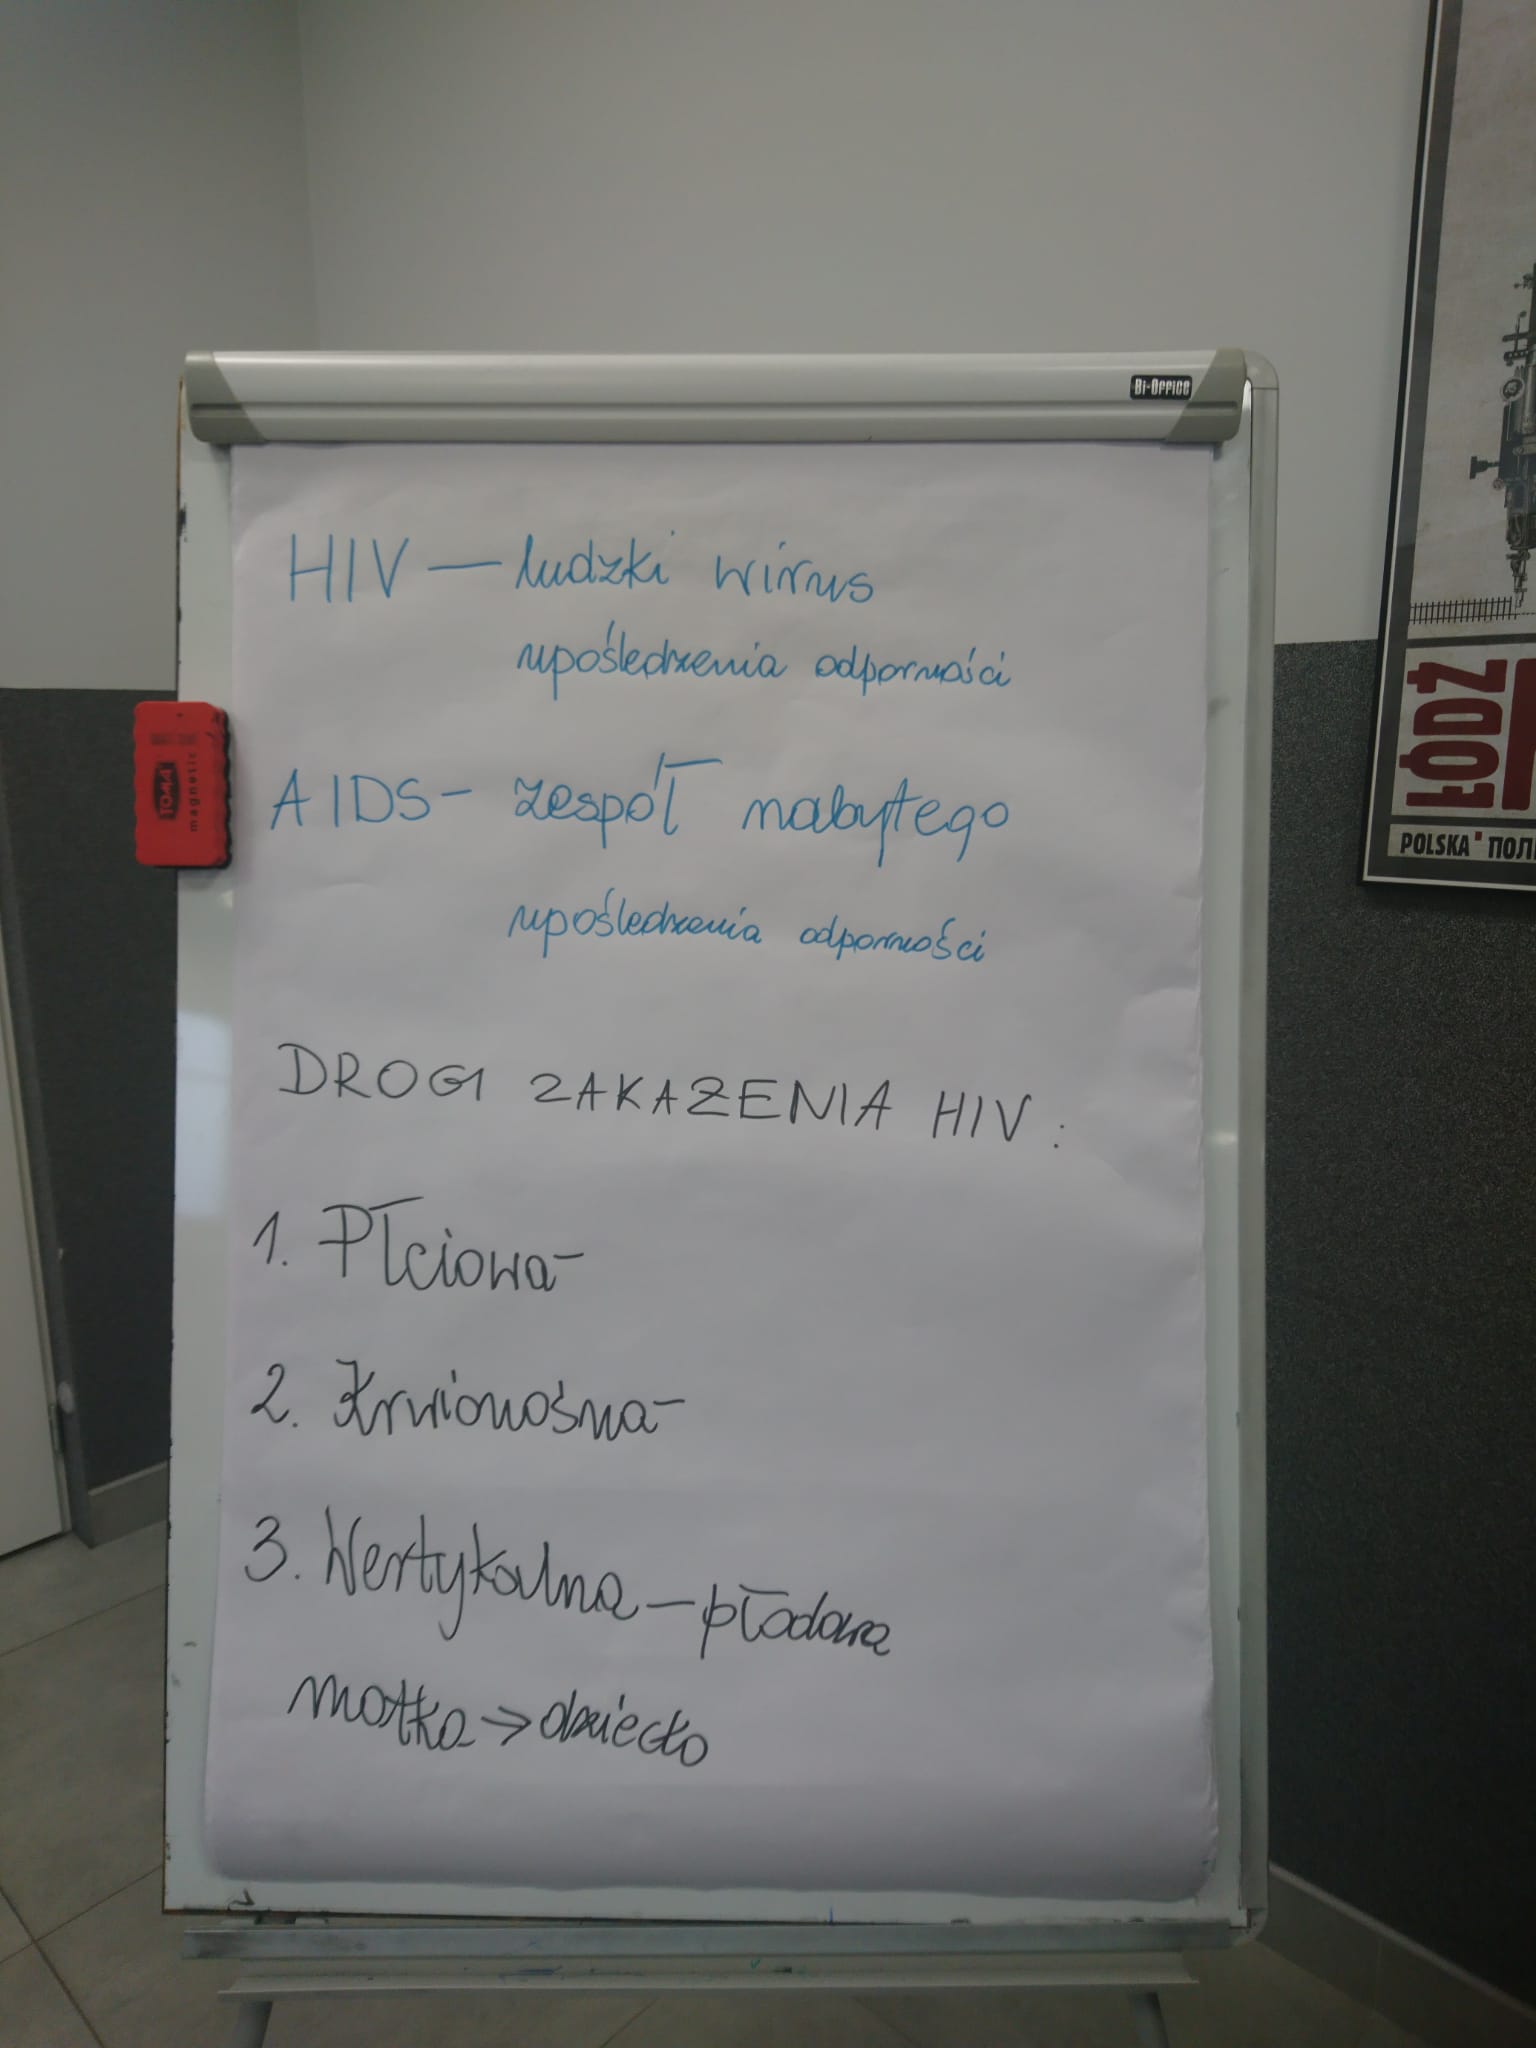 Bi-Office
HIV — ludzki wirus
upośledzenia odporności
AIDS - zespół nabytego
upośledzenia odporności
DROGI ZAKAŻENIA HIV:
1. Płciowa -
2. Krwionośna -
3. Wertykalna — płodowa
matka → dziecko
TOMA
magnetic
ŁÓDŹ
POLSKA